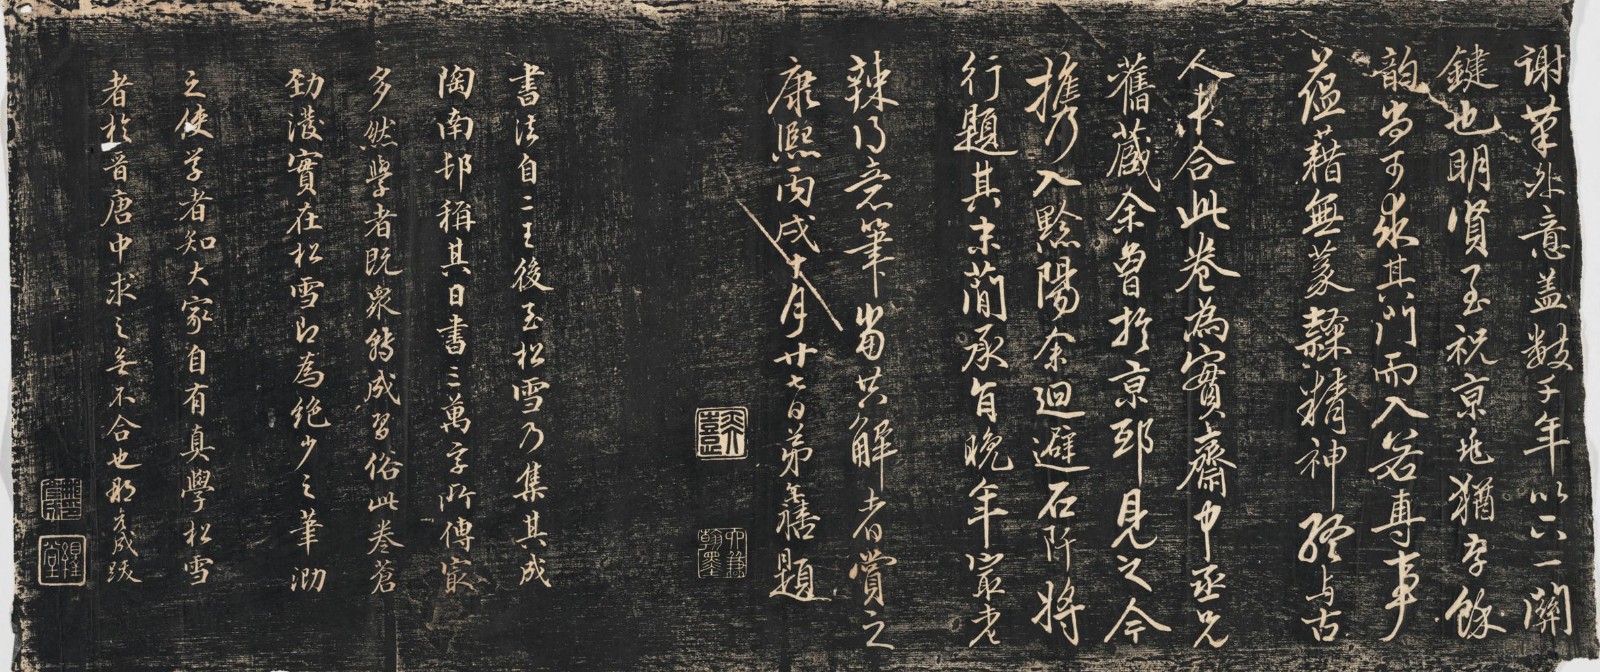 謝筆外意蓋數千年以下一關
鍵也明賢至祝京兆猶存餘
韵尚可求其門而入若專事
蘊藉無蒙隸精神終与古
人未合此卷為實齋中丞兄
舊藏余曾於京邸見之今
攜乃入黔陽余迴避石阡將
行題其末簡承旨晚年寂老
辣得意筆當共解者賞之
康熙丙戌十月廿七日弟善題
書法自二王後至松雪乃集其成
陶南邨稱其日書三萬字所傳寂
多然學者既衆轉成習俗此卷蒼
勁澹實在松雪即為絶少之筆泐
之使学者知大家自有真學松雪
者於晉唐中求之無不合也成跋